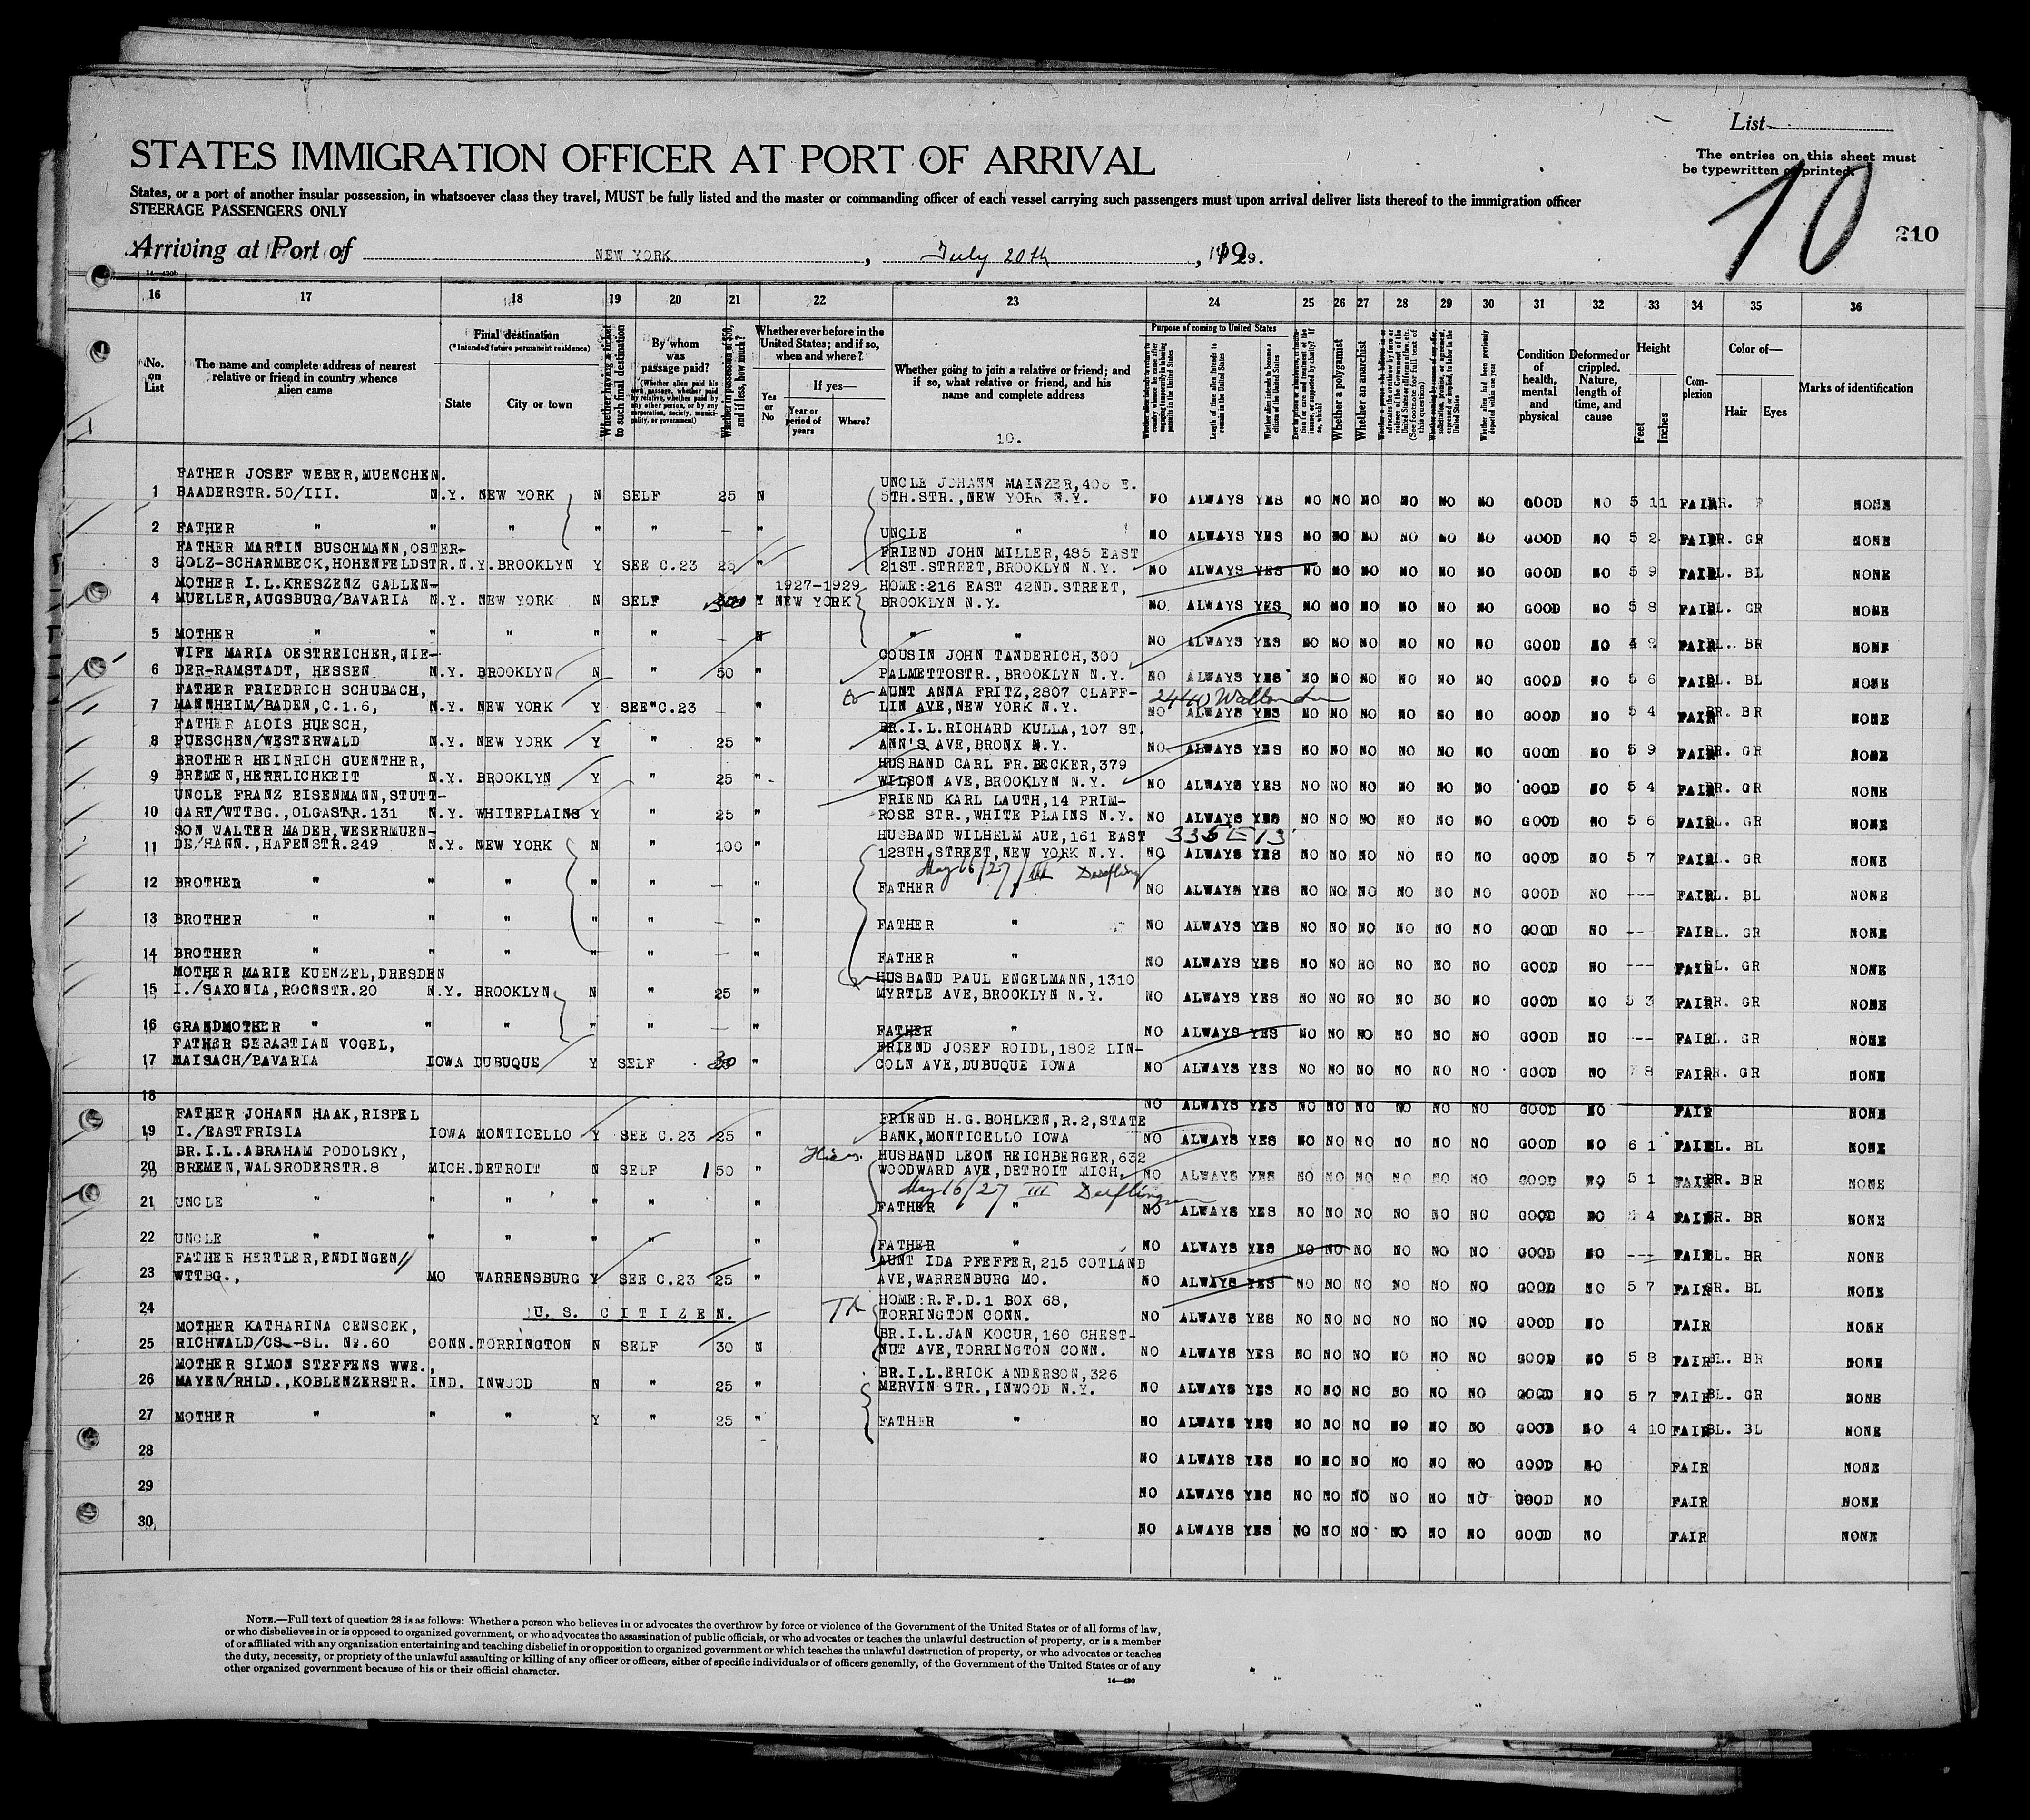 List
The entries on this sheet must
be typewritten or printed.
10
210
STATES IMMIGRATION OFFICER AT PORT OF ARRIVAL
States, or a port of another insular possession, in whatsoever class they travel, MUST be fully listed and the master or commanding officer of each vessel carrying such passengers must upon arrival deliver lists thereof to the immigration officer
STEERAGE PASSENGERS ONLY
Arriving at Port of NEW YORK, July 20th, 1929.
14—430b
16 17 18 19 20 21 22 23 24 25 26 27 28 29 30 31 32 33 34 35 36
No. on List
The name and complete address of nearest relative or friend in country whence alien came
Final destination
(*Intended future permanent residence)
State City or town
Whether having a ticket to such final destination
By whom was passage paid?
(Whether alien paid his own passage, whether paid by relative, whether paid by any other person, or by any corporation, society, municipality, or government)
Whether in possession of $50, and if less, how much?
Whether ever before in the United States; and if so, when and where?
Yes or No
If yes—
Year or period of years Where?
Whether going to join a relative or friend; and if so, what relative or friend, and his name and complete address
10.
Purpose of coming to United States
Length of time alien intends to remain in the United States
Whether alien intends to become a citizen of the United States
Whether a polygamist
Whether an anarchist
(See footnote for full text of this question)
Whether alien had been previously deported within one year
Condition of health, mental and physical
Deformed or crippled. Nature, length of time, and cause
Height
Feet Inches
Complexion
Color of—
Hair Eyes
Marks of identification
FATHER JOSEF WEBER, MUENCHEN. UNCLE JOHANN MAINZER, 406 E.
1 BAADERSTR.50/III. N.Y. NEW YORK N SELF 25 N 5TH.STR., NEW YORK N.Y. NO ALWAYS YES NO NO NO NO NO NO GOOD NO 5 11 FAIR NONE
2 FATHER " " " " " — " UNCLE " NO ALWAYS YES NO NO NO NO NO NO GOOD NO 5 2 FAIR BR. GR NONE
FATHER MARTIN BUSCHMANN, OSTER- FRIEND JOHN MILLER, 485 EAST
3 HOLZ-SCHARMBECK, HOHENFELDSTR. N.Y. BROOKLYN Y SEE C.23 25 " 21ST.STREET, BROOKLYN N.Y. NO ALWAYS YES NO NO NO NO NO NO GOOD NO 5 9 FAIR BL. BL NONE
MOTHER I.L.KRESZENZ GALLEN- 1927-1929 HOME: 216 EAST 42ND.STREET,
4 MUELLER, AUGSBURG/BAVARIA N.Y. NEW YORK N SELF Y NEW YORK BROOKLYN N.Y. NO ALWAYS YES NO NO NO NO NO NO GOOD NO 5 8 FAIR BL. GR NONE
5 MOTHER " " " " " — N " " NO ALWAYS YES NO NO NO NO NO NO GOOD NO FAIR BL. BR NONE
WIFE MARIA OESTREICHER, NIE- COUSIN JOHN TANDERICH, 300
6 DER-RAMSTADT, HESSEN N.Y. BROOKLYN N " 50 " PALMETTOSTR., BROOKLYN N.Y. NO ALWAYS YES NO NO NO NO NO NO GOOD NO 5 6 FAIR BL. BL NONE
FATHER FRIEDRICH SCHUBACH, AUNT ANNA FRITZ, 2807 CLAFF- 2440
7 MANNHEIM/BADEN, C.1.6, N.Y. NEW YORK Y SEE C.23 — " LIN AVE, NEW YORK N.Y. NO ALWAYS YES NO NO NO NO NO NO GOOD NO 5 4 FAIR BR. BR NONE
FATHER ALOIS HUESCH, BR.I.L.RICHARD KULLA, 107 ST.
8 PUESCHEN/WESTERWALD N.Y. NEW YORK Y " 25 " ANN'S AVE, BRONX N.Y. NO ALWAYS YES NO NO NO NO NO NO GOOD NO 5 9 FAIR BR. GR NONE
BROTHER HEINRICH GUENTHER, HUSBAND CARL FR.BECKER, 379
9 BREMEN, HERRLICHKEIT N.Y. BROOKLYN Y " 25 " WILSON AVE, BROOKLYN N.Y. NO ALWAYS YES NO NO NO NO NO NO GOOD NO 5 4 FAIR BR. GR NONE
UNCLE FRANZ EISENMANN, STUTT- FRIEND KARL LAUTH, 14 PRIM-
10 GART/WTTBG., OLGASTR.131 N.Y. WHITEPLAINS Y " 25 " ROSE STR., WHITE PLAINS N.Y. NO ALWAYS YES NO NO NO NO NO NO GOOD NO 5 6 FAIR BL. GR NONE
SON WALTER MADER, WESERMUEN- HUSBAND WILHELM AUE, 161 EAST 335 E 13
11 DE/HANN., HAFENSTR.249 N.Y. NEW YORK N " 100 " 128TH.STREET, NEW YORK N.Y. NO ALWAYS YES NO NO NO NO NO NO GOOD NO 5 7 FAIR BL. GR NONE
May 16/27 III
12 BROTHER " " " " " — " FATHER NO ALWAYS YES NO NO NO NO NO NO GOOD NO --- FAIR BL. BL NONE
13 BROTHER " " " " " — " FATHER " NO ALWAYS YES NO NO NO NO NO NO GOOD NO -- FAIR BL. GR NONE
14 BROTHER " " " " " — " FATHER NO ALWAYS YES NO NO NO NO NO NO GOOD NO --- FAIR BL. GR NONE
MOTHER MARIE KUENZEL, DRESDEN HUSBAND PAUL ENGELMANN, 1310
15 I./SAXONIA, ROCNSTR.20 N.Y. BROOKLYN N " 25 " MYRTLE AVE, BROOKLYN N.Y. NO ALWAYS YES NO NO NO NO NO NO GOOD NO 5 3 FAIR BR. GR NONE
16 GRANDMOTHER " " " " " — " FATHER " NO ALWAYS YES NO NO NO NO NO NO GOOD NO -- FAIR BL. GR NONE
FATHER SEBASTIAN VOGEL, FRIEND JOSEF ROIDL, 1802 LIN-
17 MAISACH/BAVARIA IOWA DUBUQUE Y SELF 30 " COLN AVE, DUBUQUE IOWA NO ALWAYS YES NO NO NO NO NO NO GOOD NO 8 FAIR BR. GR NONE
18 NO ALWAYS YES NO NO NO NO NO NO GOOD NO FAIR NONE
FATHER JOHANN HAAK, RISPEL FRIEND H.G.BOHLKEN, R.2, STATE
19 I./EASTFRISIA IOWA MONTICELLO Y SEE C.23 25 " BANK, MONTICELLO IOWA NO ALWAYS YES NO NO NO NO NO NO GOOD NO 6 1 FAIR BL. BL NONE
BR.I.L.ABRAHAM PODOLSKY, HUSBAND LEON REICHBERGER, 632
20 BREMEN, WALSRODERSTR.8 MICH. DETROIT N SELF 150 " WOODWARD AVE, DETROIT MICH. NO ALWAYS YES NO NO NO NO NO NO GOOD NO 5 1 FAIR BR. BR NONE
May 16/27 III
21 UNCLE " " " " " " FATHER " NO ALWAYS YES NO NO NO NO NO NO GOOD NO 5 4 FAIR BR. BR NONE
22 UNCLE " " " " " " FATHER " NO ALWAYS YES NO NO NO NO NO NO GOOD NO --- FAIR BL. BR NONE
FATHER HERTLER, ENDINGEN/ AUNT IDA PFEFFER, 215 COTLAND
23 WTTBG., MO WARRENSBURG Y SEE C.23 25 " AVE, WARRENBURG MO. NO ALWAYS YES NO NO NO NO NO NO GOOD NO 5 7 FAIR BR. BL NONE
24 U. S. CITIZEN. HOME: R.F.D.1 BOX 68,
TORRINGTON CONN. NO ALWAYS YES NO NO NO NO NO NO GOOD NO FAIR NONE
MOTHER KATHARINA CENSCEK, BR.I.L.JAN KOCUR, 160 CHEST-
25 RICHWALD/CS.-SL. No.60 CONN. TORRINGTON N SELF 30 N NUT AVE, TORRINGTON CONN. NO ALWAYS YES NO NO NO NO NO NO GOOD NO 5 8 FAIR BL. BR NONE
MOTHER SIMON STEFFENS WWE., BR.I.L.ERICK ANDERSON, 326
26 MAYEN/RHLD., KOBLENZERSTR. IND. INWOOD N " 25 " MERVIN STR., INWOOD N.Y. NO ALWAYS YES NO NO NO NO NO NO GOOD NO 5 7 FAIR BL. GR NONE
27 MOTHER " " " Y " 25 " FATHER " NO ALWAYS YES NO NO NO NO NO NO GOOD NO 4 10 FAIR BL. BL NONE
28 NO ALWAYS YES NO NO NO NO NO NO GOOD NO FAIR NONE
29 NO ALWAYS YES NO NO NO NO NO NO GOOD NO FAIR NONE
30 NO ALWAYS YES NO NO NO NO NO NO GOOD NO FAIR NONE
NOTE.—Full text of question 28 is as follows: Whether a person who believes in or advocates the overthrow by force or violence of the Government of the United States or of all forms of law,
or who disbelieves in or is opposed to organized government, or who advocates the assassination of public officials, or who advocates or teaches the unlawful destruction of property, or is a member
of or affiliated with any organization entertaining and teaching disbelief in or opposition to organized government or which teaches the unlawful destruction of property, or who advocates or teaches
the duty, necessity, or propriety of the unlawful assaulting or killing of any officer or officers, either of specific individuals or of officers generally, of the Government of the United States or of any
other organized government because of his or their official character.
14—430